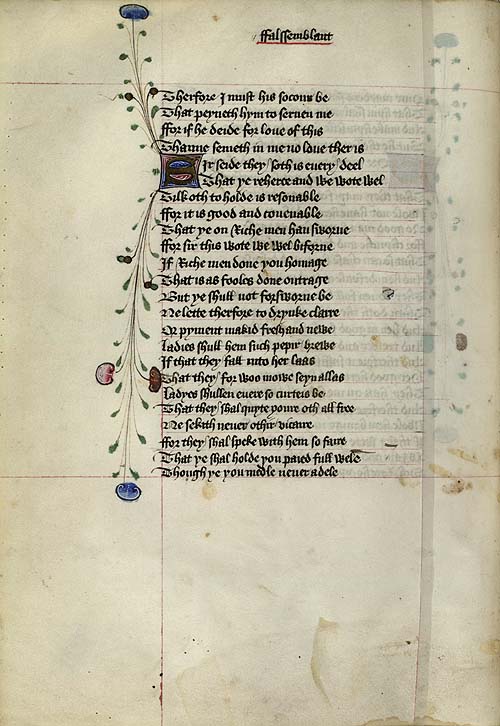 ffalssemblant
Therfore I must his socour be
That peyneth hym to seruen me
ffor if he deide for loue of this
Thanne semeth in me no loue ther is
Sir seide they soth is euery deel
That ye reherce and we wote wel
Thilk oth to holde is resonable
ffor it is good and couenable
That ye on Riche men han sworne
ffor sir this wote we wel biforne
If Riche men done you homage
That is as fooles done outrage
But ye shull not forsworne be
Ne lette therfore to drynke clarre
Or pyment makid fresh and newe
ladies shull hem such pepir brewe
If that they fall into her laas
That they for woo mowe seyn allas
ladyes shullen euere so curteis be
That they shal quyte youre oth all free
Ne sekith neuer othir vicaire
ffor they shal speke with hem so faire
That ye shal holde you paied full wele
Though ye you medle neuer a dele